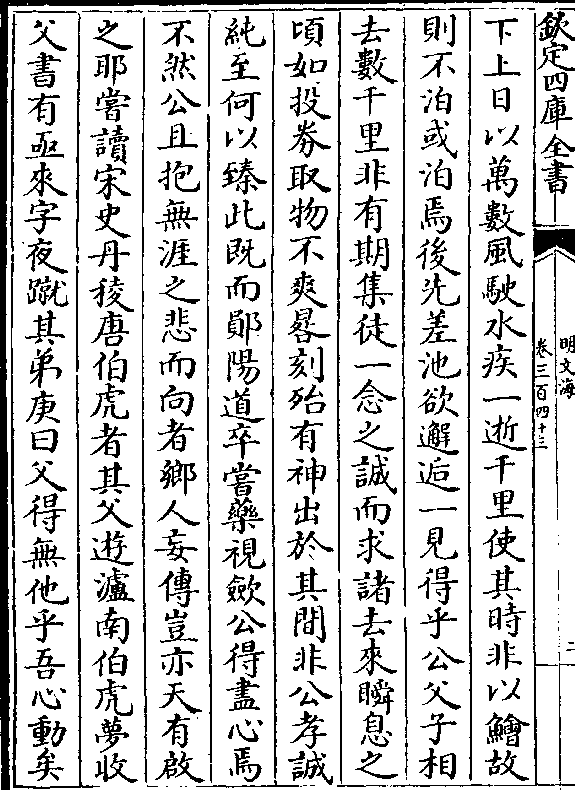 欽定四庫全書
明文海
卷三百四十三
二
下上日以萬數風駛水疾一逝千里使其時非以鱠故
則不泊或泊焉後先差池欲邂逅一見得乎公父子相
去數千里非有期集徒一念之誠而求諸去來瞬息之
頃如投券取物不爽晷刻殆有神出於其間非公孝誠
純至何以臻此既而鄖陽道卒嘗藥視歛公得盡心焉
不然公且抱無涯之悲而向者鄉人妄傳豈亦天有啟
之耶嘗讀宋史丹稜唐伯虎者其父遊瀘南伯虎夢收
父書有亟來字夜蹴其弟庚曰父得無他乎吾心動矣